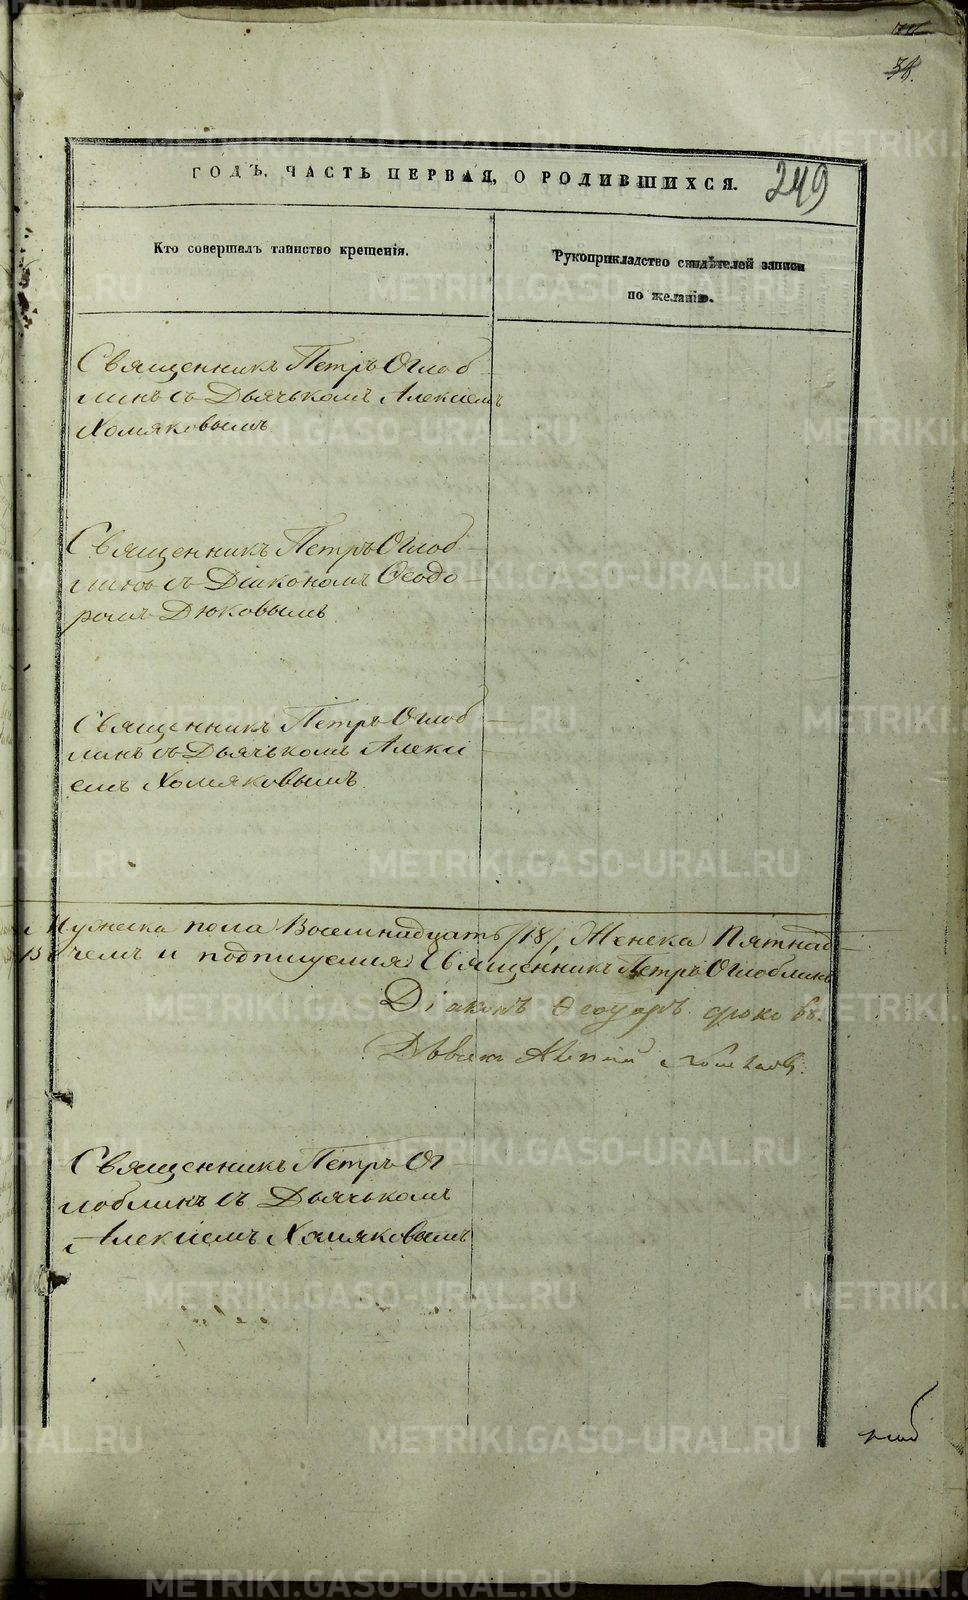 34.
ГОДЪ. ЧАСТЬ ПЕРВАЯ, О РОДИВШИХСЯ. 249
Кто совершалъ таинство крещенія.
Рукоприкладство свидѣтелей записи
по желанію.
Священникъ Петръ Оглоб
линъ съ Дьячькомъ Алексіемъ
Хомяковымъ
Священникъ Петръ Оглоб
линъ съ Діакономъ Ѳеодо
ромъ Дюковымъ
Священникъ Петръ Оглоб
линъ съ Дьячькомъ Алексі
емъ Хомяковымъ.
Мужеска пола Восемнадцать /18/, Женска Пятнад
чемъ и подпишемся Священникъ Петръ Оглоблинъ
Діаконъ Ѳеодоръ Дюковъ.
Алексій Хомяковъ.
Священникъ Петръ Ог
лоблинъ съ Дьячькомъ
Алексіемъ Хомяковымъ
METRIKI.GASO-URAL.RU